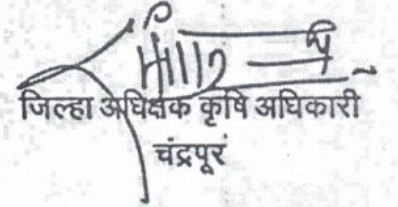 जिल्हा अधिक्षक कृषि अधिकारी
चंद्रपूर